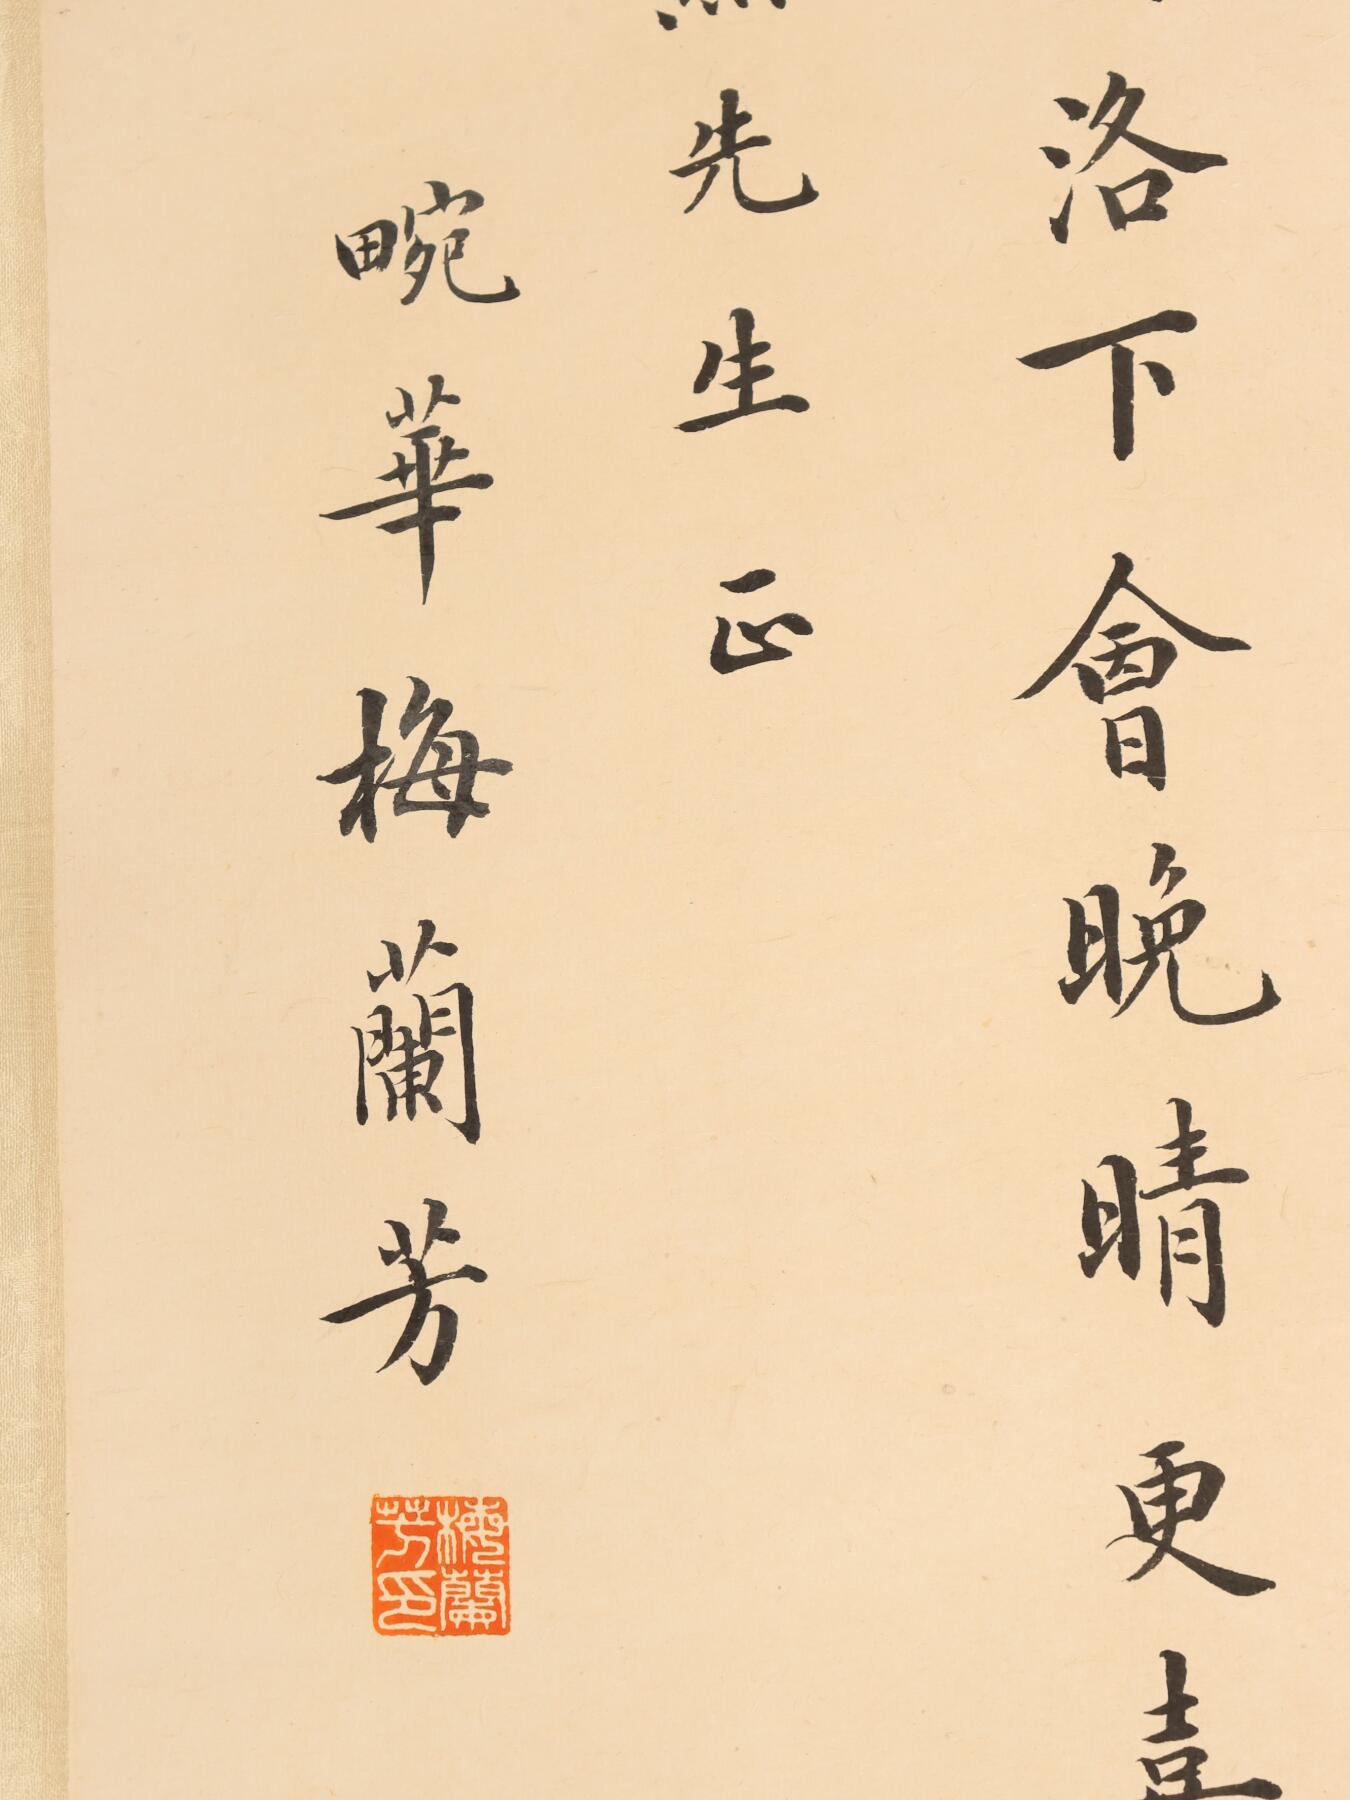 洛下會晚晴更喜
先生正
畹華梅蘭芳
梅蘭芳印